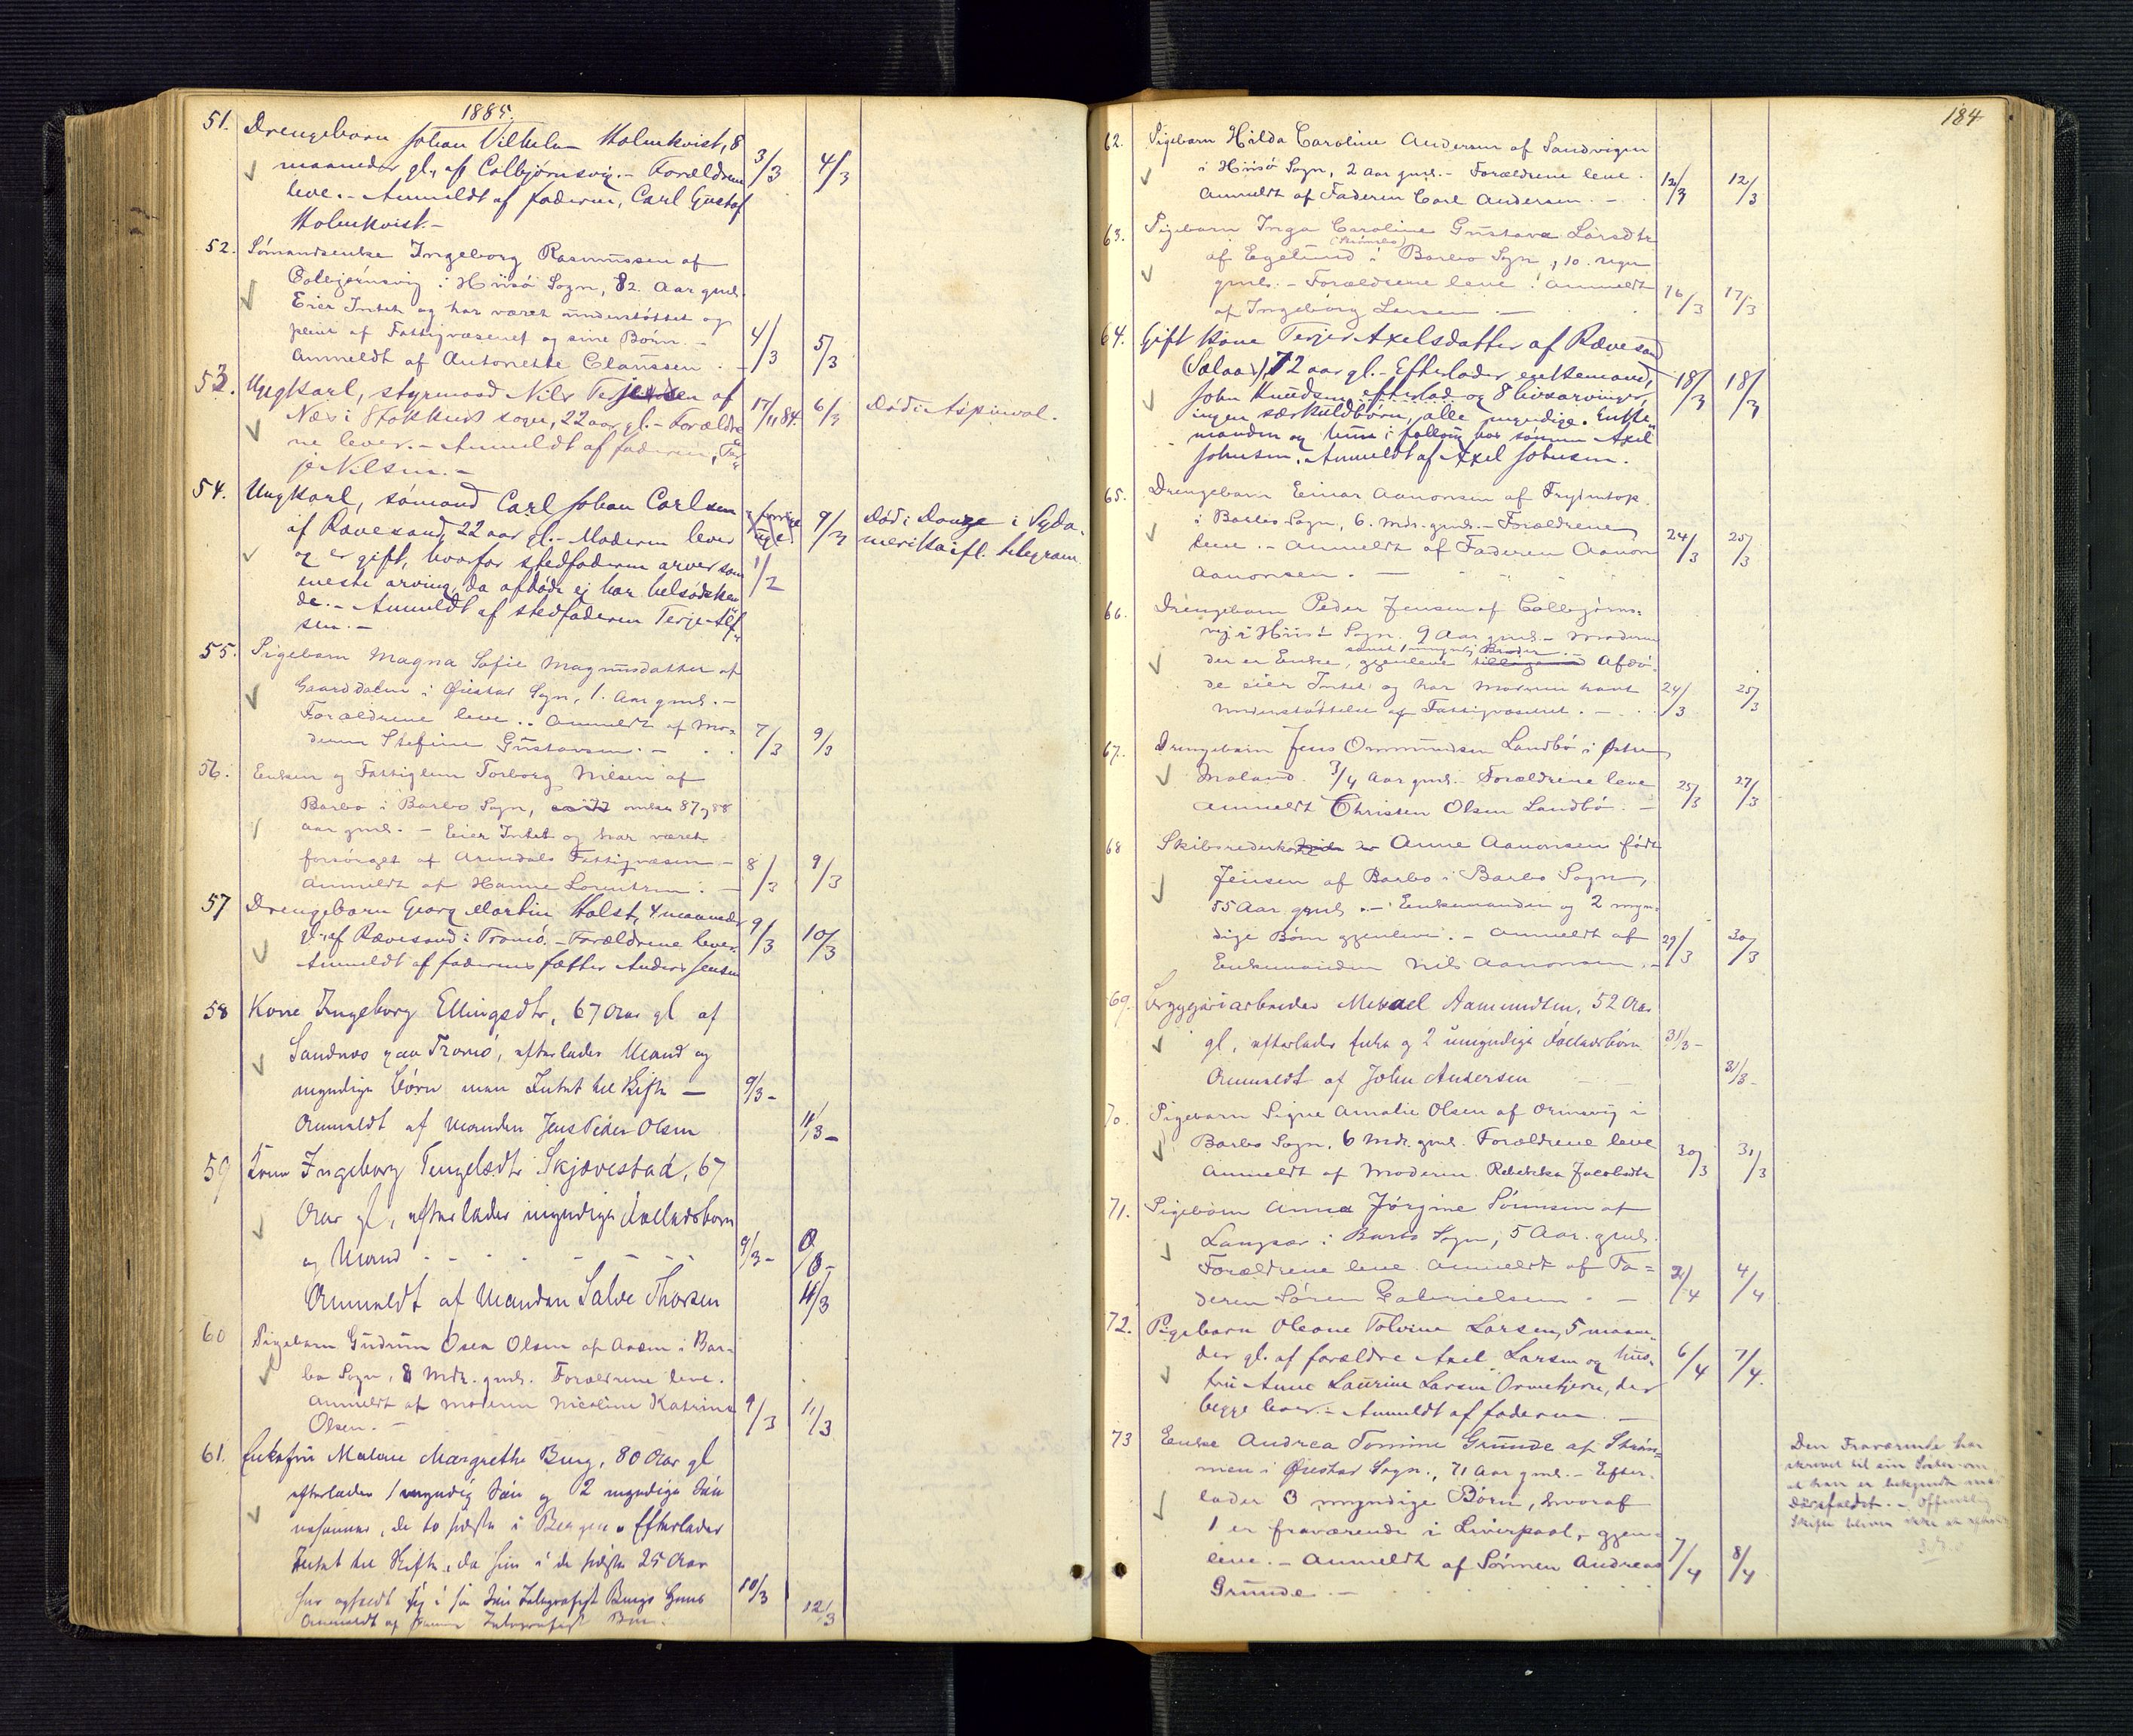 1885.
51. Drengebarn Johan Vilhelm Holmkvist, 8
maaneder gl., af Colbjørnsvig. - Forældrene 3/3 4/3
leve. - Anmeldt af faderen, Carl Gustaf
Holmkvist. -
52. Sømandsenke Ingeborg Rasmussen af
Colbjørnsvig i Hiisø Sogn, 82 Aar gml.
Eier Intet og har været understøttet og
pleiet af Fattigvæsenet og sine Børn. - 4/3 5/3
Anmeldt af Antonette Claussen. -
53. Ungkarl, styrmand Nils Terjesen af 17/11 84. 6/3 Død i Aspinwal.
Næs i Stokken sogn, 22 aar gl. - Forældre
ne lever. - Anmeldt af faderen, Ter
je Nilsen. -
54. Ungkarl, sømand Carl Johan Carlsen 9/3 Død i i Syda-
af Rævesand, 22 aar gl. - Moderen lever merika ifl. telegram.
og er gift, hvorfor stedfaderen arver som 1/2
eneste arving, da afdøde ej har helsødsken
de. - Anmeldt af stedfaderen Terje Alf
sen. -
55. Pigebarn Magna Sofie Magnusdatter af
Gaarddalen i Øiestad Sogn, 1 Aar gml. -
Forældrene leve. - Anmeldt af Mo-
deren Stefine Gustavsen. - 7/3 9/3
56. Enken og Fattiglem Torborg Nilsen af
Barbo i Barbo Sogn, omkr 87 g 88
Aar gml. - Eier Intet og har været
forsørget af Arendals Fattigvæsen - 8/3 9/3
Anmeldt af Hanne Lorentzen. -
57 Drengebarn Georg Martin Holst, 4 maaneder 9/3 10/3
gl. af Rævesand i Tromø. - Forældrene lever.
Anmeldt af faderens fætter Anders Jensen
58 Kone Ingeborg Ellingsdtr, 67 Aar gl af
Sandnæs paa Tromø, efterlader Mand og
myndige Børn men Intet til Skifte - 9/3 -
Anmeldt af Manden Jens Peder Olsen 11/3 -
59 Kone Ingeborg Tengelsdtr Skjævestad, 67
Aar gl, efterlader myndige Fællesbørn
og Mand - 9/3 -
Anmeldt af Manden Salve Thorsen 11/3
60 Pigebarn Gudrun Osea Olsen af i Bar-
bo Sogn, 8 Mdr. gml. Forældrene leve.
Anmeldt af Moderen Nicoline Katrine 9/3 11/3
Olsen. -
61. Enkefru Malene Margrethe Burg, 80 Aar gl
efterlader 1 myndig Søn og 2 myndige Søn
nesønner, de to sidste i Bergen. Efterlader
Intet til Skifte, da hun i de sidste 25 Aar
har opholdt sig i sin Søn Telegrafist Burgs Huus 10/3
Anmeldt af Telegrafist 12/3
184
62. Pigebarn Hilda Caroline Andersen af Sandvigen
i Hiisø Sogn, 2 Aar gml. - Forældrene leve. 12/3 12/3
Anmeldt af Faderen Carl Andersen. -
63. Pigebarn Inga Caroline Gustava Larsdtr
af Egelund i Barbo Sogn, 10 Uger
gml. - Forældrene leve. Anmeldt 16/3 17/3
af Ingeborg Larsen. -
64. Gift Kone Terjer Axelsdatter af Rævesand
(Salaas), 72 aar gl. - Efterlader enkemand, 18/3 18/3
John Knudsen og 8 livsarvinger,
ingen særkuldbørn, alle myndige. Enke
manden og hun i følloug hos sønnen Axel
Johnsen. Anmeldt af Axel Johnsen.
65. Drengebarn Einar Aanonsen af Frydentop
i Barbo Sogn, 6 Mdr. gml. - Forældrene
leve. - Anmeldt af Faderen Aanon 24/3 25/3
Aanonsen. -
66. Drengebarn Peder Jensen af Colbjørns-
vig i Hiisø Sogn, 9 Aar gml. - Moderen
samt 1 umyndig Broder. -
der er Enke, gjenlever Afdø-
de eier Intet og har Moderen havt 24/3 25/3
Understøttelse af Fattigvæsenet. -
67. Drengebarn Jens Ommundsen Landbø i Østre
Moland. 3/4 Aar gml. - Forældrene leve
Anmeldt Christen Olsen Landbø. - 25/3 27/3
68 Skibsrederkone Anne Aanonsen født
Jensen af Barbo i Barbo Sogn,
55 Aar gml. - Enkemanden og 2 myn-
dige Børn gjenleve. - Anmeldt af 29/3 30/3
Enkemanden Nils Aanonsen. -
69. Mikael Aamundsen, 52 Aar
gl, efterlader Enke og 2 umyndige Fællesbørn 31/3 -
Anmeldt af John Andersen 31/3 -
70. Pigebarn Signe Amalie Olsen af Ormevig i
Barbo Sogn, 6 Mdr. gml. Forældrene leve
Anmeldt af Moderen Rebekka Jacobsdtr 30/3 31/3
71. Pigebarn Anna Jørgine Sørensen af
Langsæ i Barbo Sogn, 5 Aar gml.
Forældrene leve. Anmeldt af Fa-
deren Søren Gabrielsen - 2/4 4/4
72. Pigebarn Oleane Tolvine Larsen, 5 maane-
der gl. af forældre Axel Larsen og hus- 6/4 7/4.
tru Anne Laurine Larsen Ormetjern, der
begge lever. - Anmeldt af faderen. -
73 Enke Andrea Tomine Grunde af Strøm-
men i Øiestad Sogn, 71 Aar gml. - Efter-
lader 3 myndige Børn, hvoraf
1 er fraværende i Liverpool, gjen-
leve. - Anmeldt af Sønnen Andreas 7/4 8/4
Grunde. -
Den Fraværende har
skrevet til sin Søster om
at han er bekjendt med
Dødsfaldet. - Offentlig
Skifte bliver ikke at